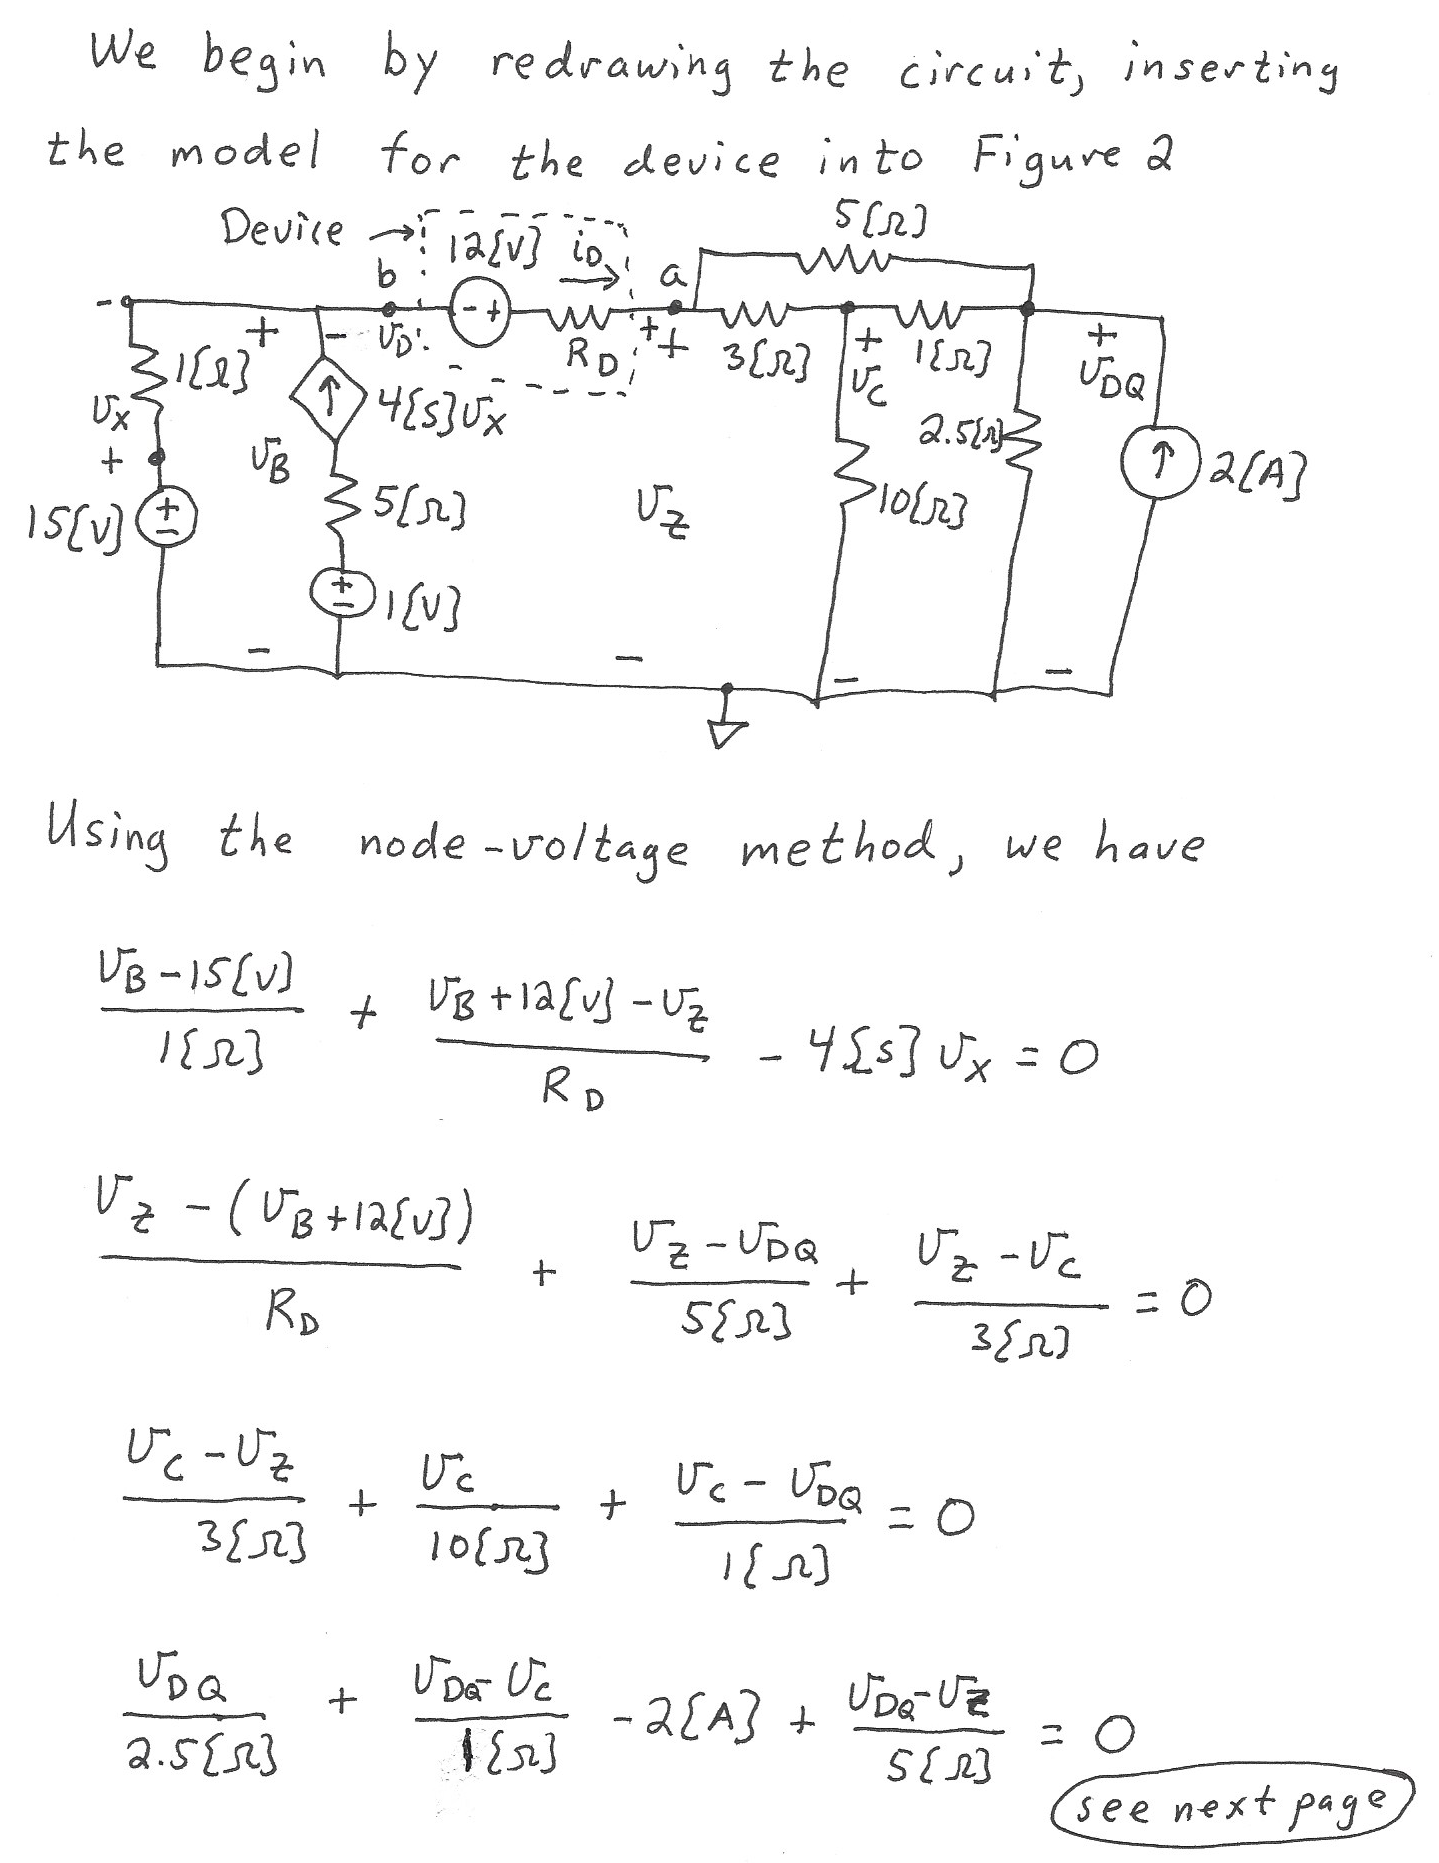 We begin by redrawing the circuit, inserting
the model for the device into Figure 2
5[Ω]
Device → 12[V] iD
b - + a
- + - vD + + 3[Ω] + 1[Ω] +
1[Ω] RD vC vDQ
vX 4[S]vX 2.5[Ω]
+ vB
15[V] + - 5[Ω] vZ 10[Ω] 2[A]
+ - 1[V]
- - - -
Using the node-voltage method, we have
(vB - 15[V]) / 1[Ω] + (vB + 12[V] - vZ) / RD - 4[S] vX = 0
(vZ - (vB + 12[V])) / RD + (vZ - vDQ) / 5[Ω] + (vZ - vC) / 3[Ω] = 0
(vC - vZ) / 3[Ω] + vC / 10[Ω] + (vC - vDQ) / 1[Ω] = 0
vDQ / 2.5[Ω] + (vDQ - vC) / 1[Ω] - 2[A] + (vDQ - vZ) / 5[Ω] = 0
see next page